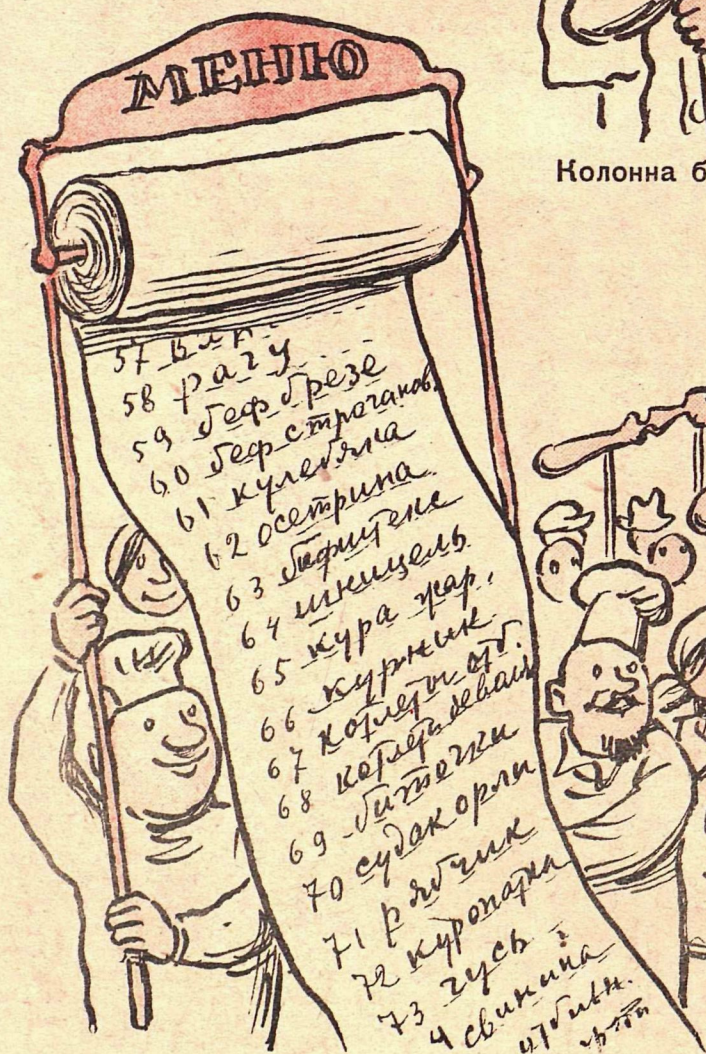 МЕНЮ
Колонна б
57
58 рагу
59 беф брезе
60 беф строганов.
61 кулебяка
62 осетрина
63 бифштекс
64 шницель
65 кура жар.
66 курник
67 котлеты отб.
68 котлеты деваль
69 биточки
70 судак орли
71 рябчик
72 куропатка
73 гусь
4 свинина
отбивн.